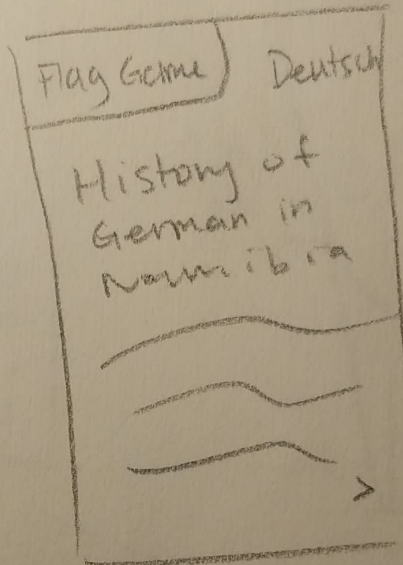 Flag Game
Deutsch
History of
German in
Namibia
>